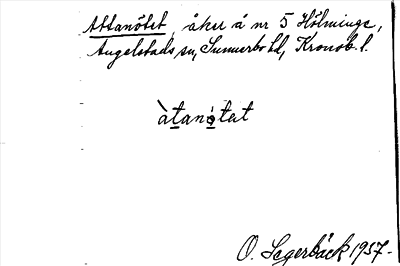 Attanötet, åker å nr 5 Hölminge,
Angelstads sn, Sunnerbo hd, Kronob. l.
àtanòtat
O. Lagerbäck 1957.-